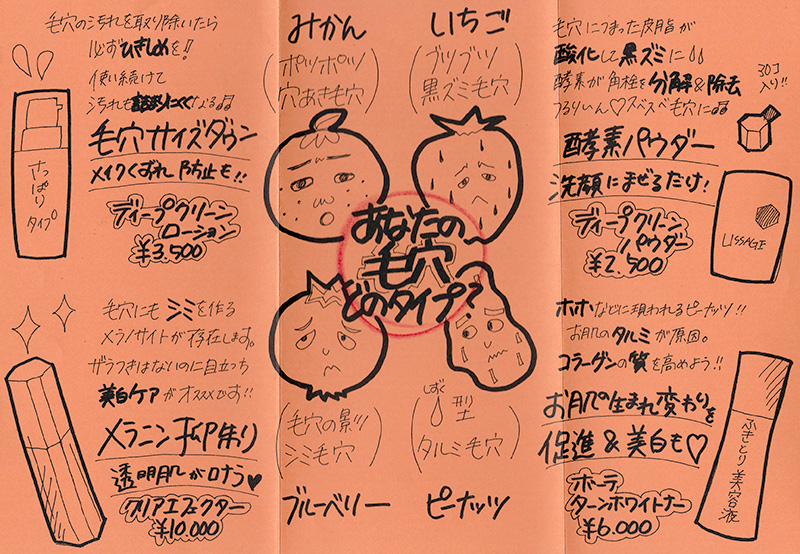 毛穴の汚れを取り除いたら
必ずひきしめを!!
使い続けて
汚れも詰まりにくくなる♫
毛穴サイズダウン
メイクくずれ防止も!!
さっぱり
タイプ
ディープクリーン
ローション
¥3,500
みかん
(ポツポツ
穴あき毛穴)
いちご
(ブツブツ
黒ズミ毛穴)
毛穴につまった皮脂が
酸化して黒ズミに
酵素が角栓を分解&除去
つるりん♡スベスベ毛穴に♫
30コ
入り!!
酵素パウダー
洗顔にまぜるだけ!
ディープクリーン
パウダー
¥2,500
LISSAGE
あなたの
毛穴
どのタイプ?
毛穴にもシミを作る
メラノサイトが存在します。
ザラつきはないのに目立つ
美白ケアがオススメです!!
メラニン抑制
透明肌が叶う♥
クリアエフェクター
¥10,000
(毛穴の影が
シミ毛穴)
ブルーベリー
(しずく型
タルミ毛穴)
ピーナッツ
ホホなどに現われるピーナッツ!!
お肌のタルミが原因。
コラーゲンの質を高めよう!!
お肌の生まれ変わりを
促進&美白も♡
ボーテ
ターンホワイトナー
¥6,000
ふきとり美容液